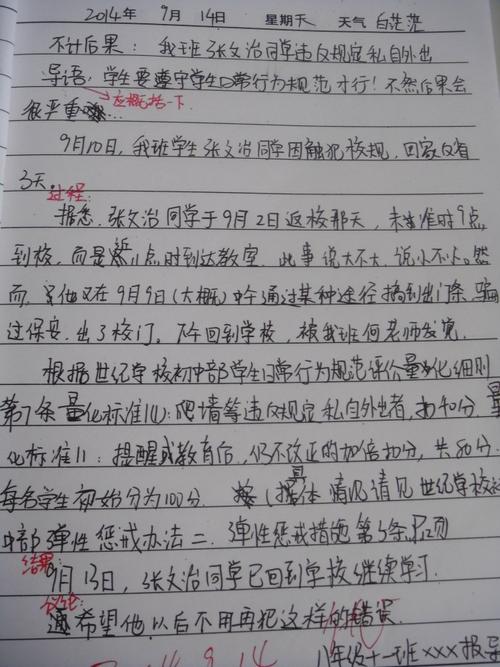 2014年 9月 14日 星期天 天气 白茫茫
不计后果：我班张文治同学违反规定私自外出
导语：学生要遵守学生日常行为规范才行！不然后果会
应概括一下
很严重...
9月10日，我班学生张文治同学因触犯校规，回家反省
3天。
过程：
据悉，张文治同学于9月2日返校那天，未准时9点
到校，而是近11点时到达教室。此事说大不大，说小不小。然
而，他又在9月9日（大概）中午通过某种途径搞到出门条，骗
过保安，出了校门。下午回到学校，被我班何老师发觉。
根据世纪学校初中部学生日常行为规范评价量化细则
第7条量化标准10：爬墙等违反规定私自外出者，扣40分，量
化标准11：提醒或教育后，仍不改正的加倍扣分，共80分。
每名学生初始分为100分。（具体情况请见世纪学校初
中部弹性惩戒办法二、弹性惩戒措施第3条，P12页
结果：
9月13日，张文治同学已回到学校继续学习。
议论：
希望他以后不用再犯这样的错误。
八年级十一班xxx报导
9.14